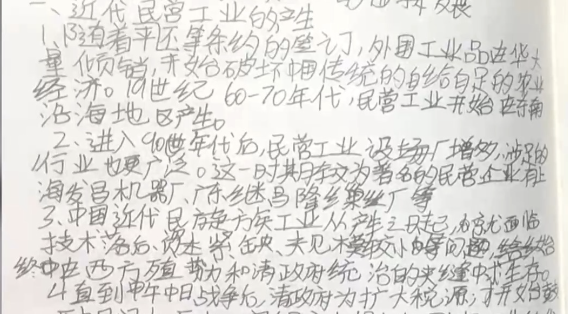 一、近代民营工业的产生
1、随着平还等条约的签订，外国工业品在华大
量倾销，开始破坏中国传统的自给自足的农业
经济。19世纪60-70年代，民营工业开始在东南
沿海地区产生。
2、进入90世年代后，民营工业设场厂增多，涉足的
行业也更广泛。这一时其月较为著名的民营企业有上
海发昌机器厂、广东继昌隆缫丝厂等
3、中国近代民族工业从产生之日起，就面临
技术落后、资本紧缺、规模较小等问题，始
终中在西方殖势力和清政府统治的夹缝中求生存。
4、直到甲午中日战争后，清政府为扩大税源，才开始